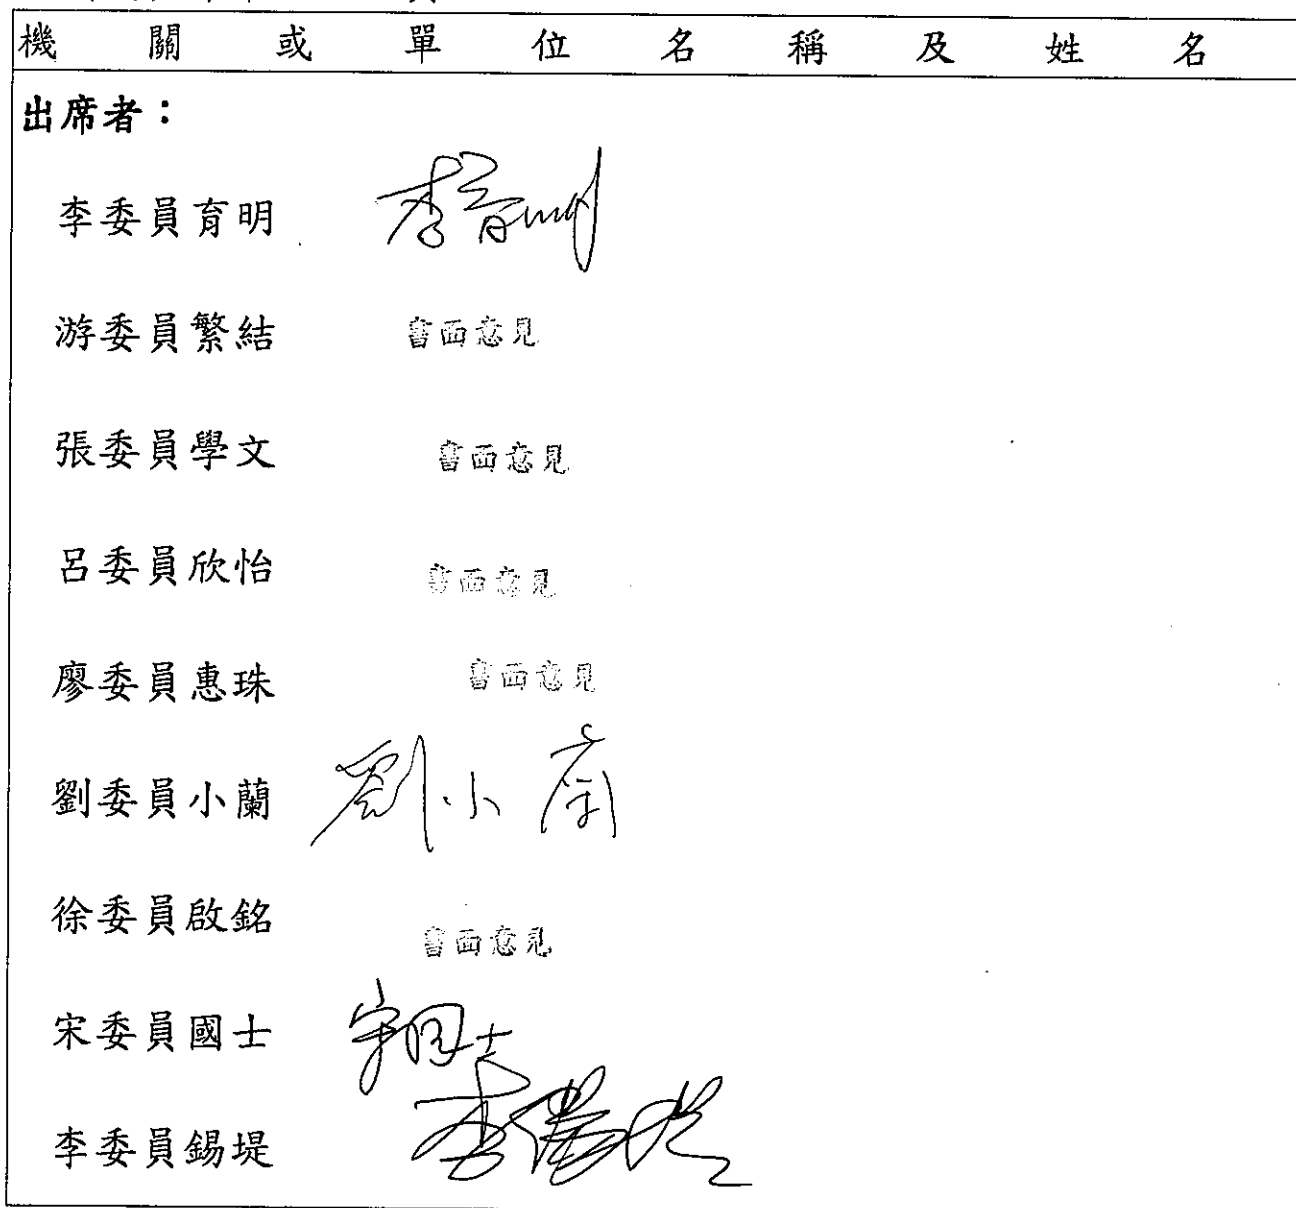 機關或單位名稱及姓名
出席者：
李委員育明 李育明
游委員繁結 書面意見
張委員學文 書面意見
呂委員欣怡 書面意見
廖委員惠珠 書面意見
劉委員小蘭 劉小蘭
徐委員啟銘 書面意見
宋委員國士 宋國士
李委員錫堤 李錫堤